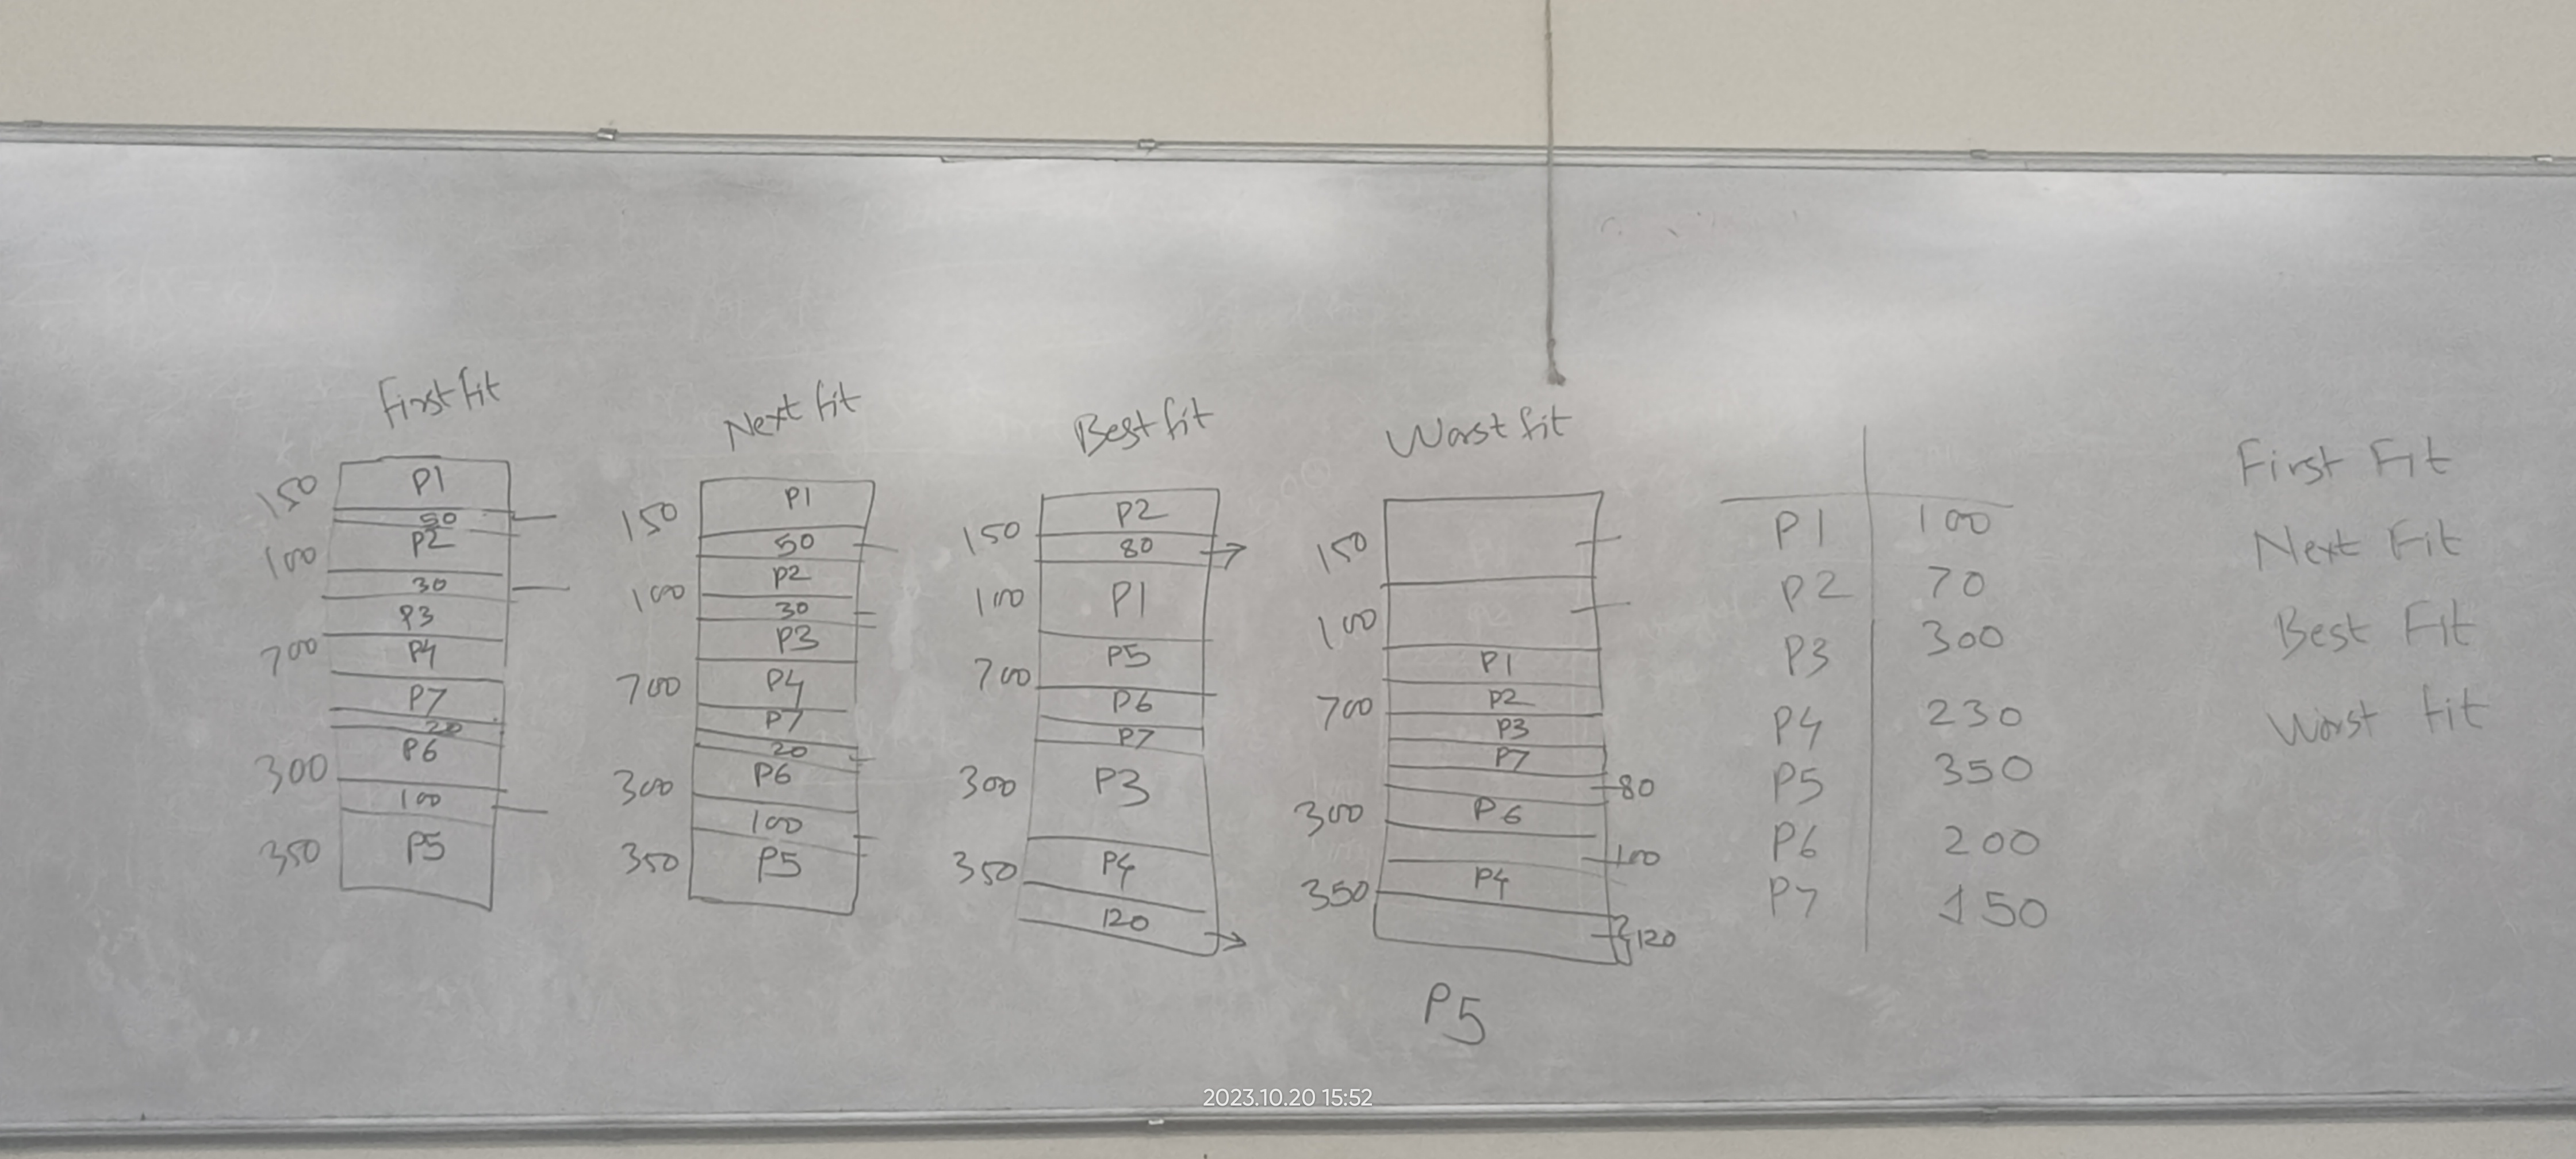 First fit
150
P1
50
100
P2
30
P3
700
P4
P7
20
300
P6
100
350
P5
Next fit
150
P1
50
100
P2
30
P3
700
P4
P7
20
300
P6
100
350
P5
Best fit
150
P2
80
100
P1
700
P5
P6
P7
300
P3
350
P4
120
Worst fit
150
100
P1
700
P2
P3
P7
80
300
P6
100
350
P4
120
P5
P1 100
P2 70
P3 300
P4 230
P5 350
P6 200
P7 150
First Fit
Next Fit
Best Fit
Worst Fit
2023.10.20 15:52